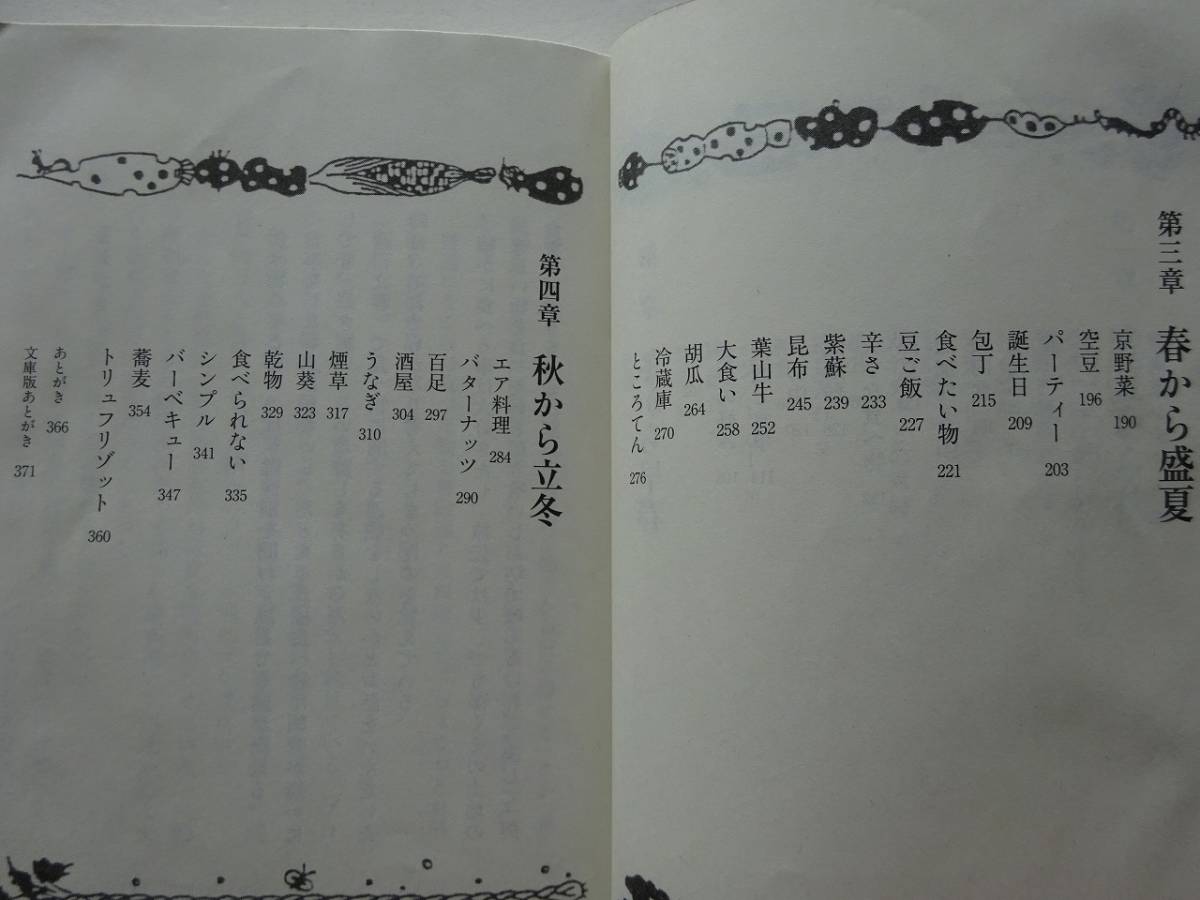 第三章 春から盛夏
京野菜 190
空豆 196
パーティー 203
誕生日 209
包丁 215
食べたい物 221
豆ご飯 227
辛さ 233
紫蘇 239
昆布 245
葉山牛 252
大食い 258
胡瓜 264
冷蔵庫 270
ところてん 276
第四章 秋から立冬
エア料理 284
バターナッツ 290
百足 297
酒屋 304
うなぎ 310
煙草 317
山葵 323
乾物 329
食べられない 335
シンプル 341
バーベキュー 347
蕎麦 354
トリュフリゾット 360
あとがき 366
文庫版あとがき 371